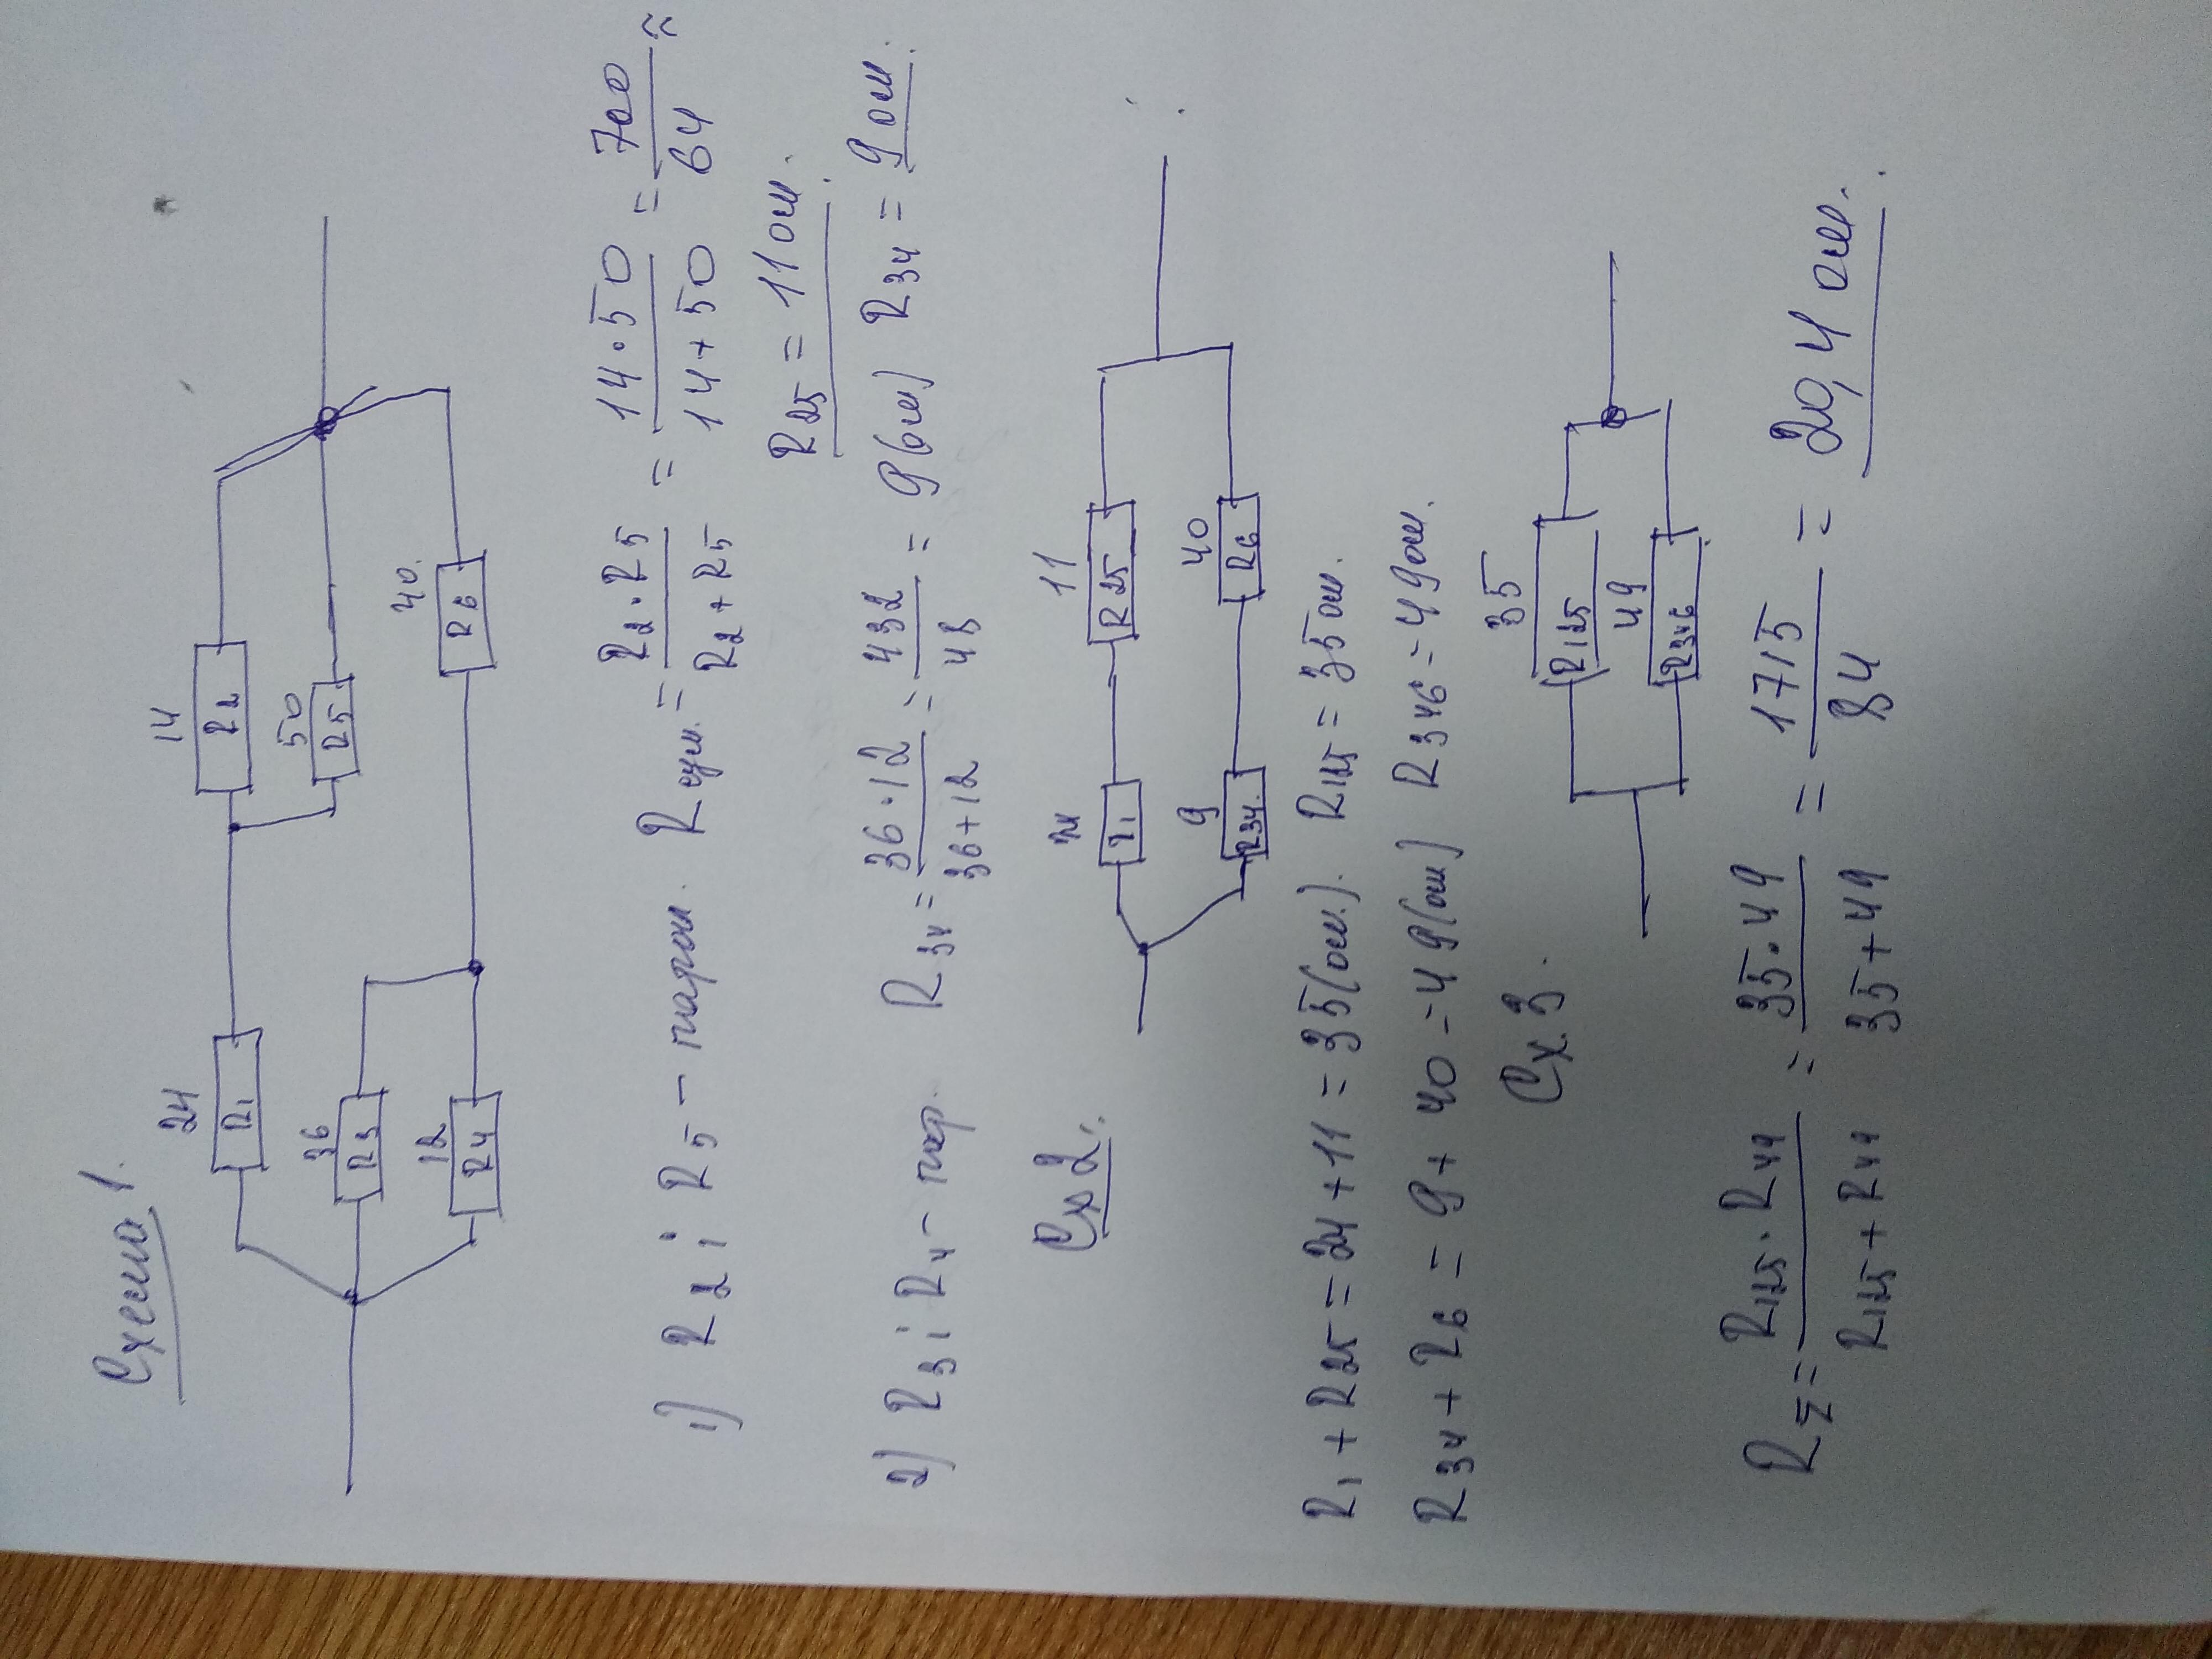 Схема 1.
24 14
R1 R2
36 50
R3 R5
12 40.
R4 R6
1) R2 i R5 - парал. Rеум. = R2·R5 / R2+R5 = 14·50 / 14+50 = 700 / 64 ≈
R25 = 11 ом.
2) R3 i R4 - пар. R34 = 36·12 / 36+12 = 432 / 48 = 9(ом) R34 = 9 ом.
Сх 2.
24 11
R1 R25
9 40
R34. R6
R1 + R25 = 24 + 11 = 35(ом). R125 = 35 ом.
R34 + R6 = 9 + 40 = 49(ом) R346 = 49 ом.
Сх. 3.
35
R125
49
R346
RΣ = R125·R44 / R125+R44 = 35·49 / 35+49 = 1715 / 84 = 20,4 ом.